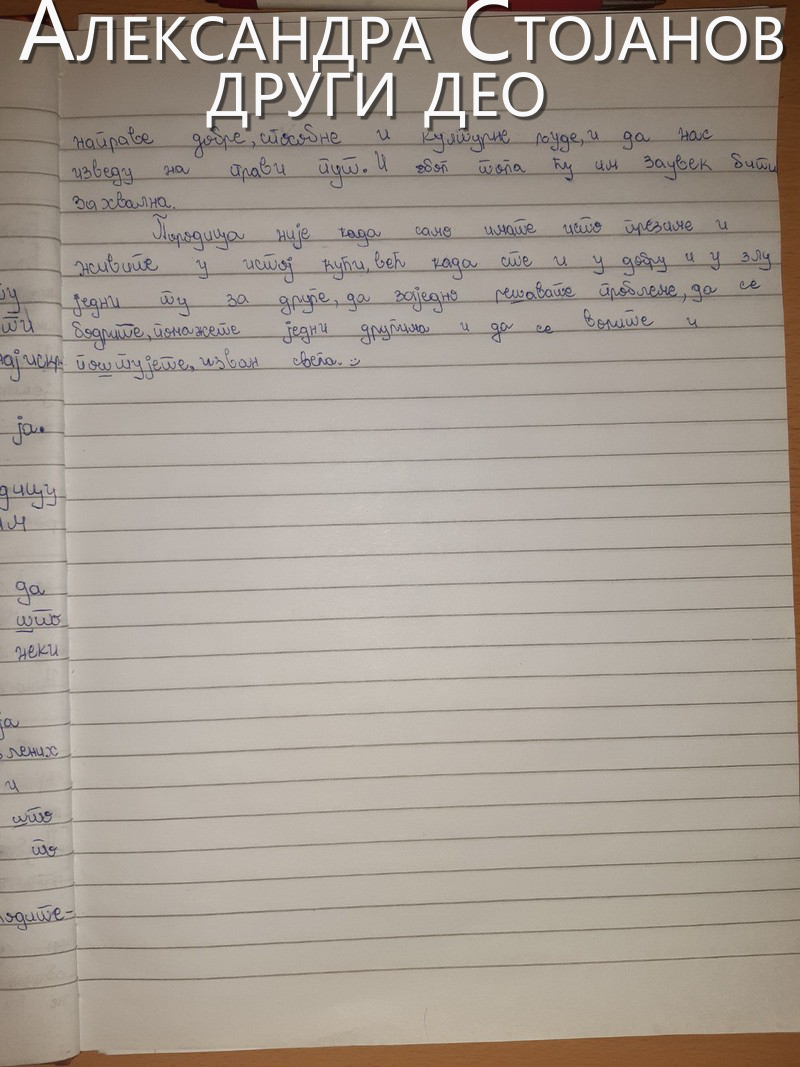 Александра Стојанов
други део
направе добре, способне и културне људе, и да нас
изведу на прави пут. И због тога ћу им заувек бити
захвална.
Породица није када само имате исто презиме и
живите у истој кући, већ када сте и у добру и у злу
једни ту за друге, да заједно решавате проблеме, да се
бодрите, помажете једни другима и да се волите и
поштујете, изван свега. :)
ту
ти
најискр-
ја.
да
што
неки
ја
и
што
то